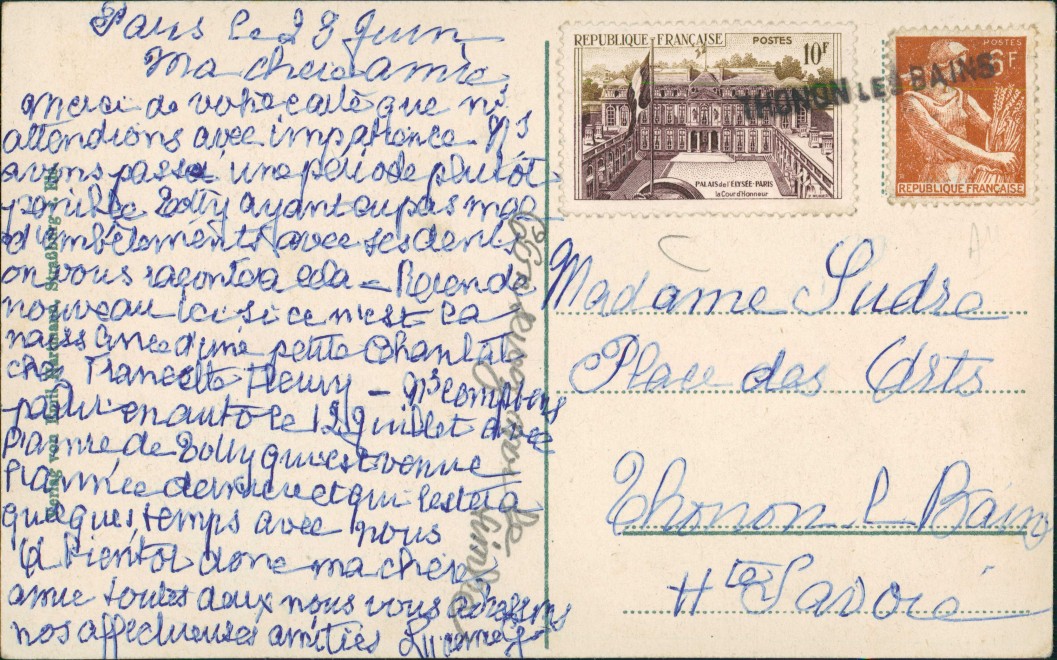 Paris le 28 Juin
Ma chère amie
Merci de votre carte que ns
attendions avec impatience. Ns
avons passé une période plutôt
pénible Lolly ayant eu pas mal
d'embêtements avec ses dents
on vous racontera cela – Rien de
nouveau ici si ce n'est la
naissance d'une petite Chantal
chez Francette Fleury – Ns comptons
partir en auto le 12 Juillet avec
l'amie de Lolly qui est venue
l'année dernière et qui restera
quelques temps avec nous
A bientôt donc ma chère
amie toutes deux nous vous adressons
nos affectueuses amitiés
REPUBLIQUE FRANÇAISE POSTES
10F
PALAIS de l'ELYSÉE-PARIS
la Cour d'Honneur
POSTES
6F
REPUBLIQUE FRANÇAISE
THONON LES BAINS
Madame Sudre
Place des Arts
Thonon l Bains
Hte Savoie
Verlag von
Straßburg i. Els.